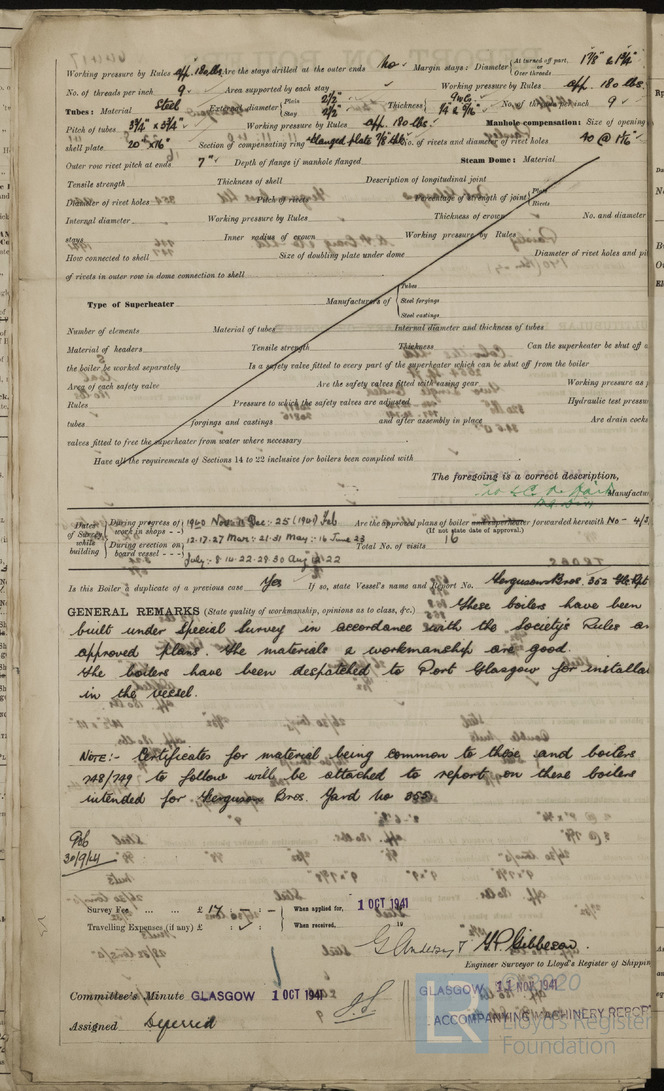 Working pressure by Rules app. 180 lbs Are the stays drilled at the outer ends no Margin stays: Diameter { At turned off part, 1 7/8" & 1 3/4"
Over threads
No. of threads per inch 9 Area supported by each stay Working pressure by Rules app. 180 lbs.
Tubes: Material Steel External diameter { Plain 2 1/2" Stay 2 1/2" Thickness { No. of threads per inch 9
Pitch of tubes 3 3/4" x 3 3/4" Working pressure by Rules app. 180 lbs. Manhole compensation: Size of opening
shell plate 20" x 16" Section of compensating ring flanged plate No. of rivets and diameter of rivet holes 40 @ 1 1/16"
Outer row rivet pitch at ends 7" Depth of flange if manhole flanged Steam Dome: Material
Tensile strength Thickness of shell Description of longitudinal joint
Diameter of rivet holes Pitch of rivets Percentage of strength of joint { Plate
Rivets
Internal diameter Working pressure by Rules Thickness of crown No. and diameter
stays Inner radius of crown Working pressure by Rules
How connected to shell Size of doubling plate under dome Diameter of rivet holes and pi
of rivets in outer row in dome connection to shell
Type of Superheater Manufacturers of { Tubes
Steel forgings
Steel castings
Number of elements Material of tubes Internal diameter and thickness of tubes
Material of headers Tensile strength Thickness Can the superheater be shut off a
the boiler be worked separately Is a safety valve fitted to every part of the superheater which can be shut off from the boiler
Area of each safety valve Are the safety valves fitted with easing gear Working pressure as p
Rules Pressure to which the safety valves are adjusted Hydraulic test pressu
tubes forgings and castings and after assembly in place Are drain cocks
valves fitted to free the superheater from water where necessary
Have all the requirements of Sections 14 to 22 inclusive for boilers been complied with
The foregoing is a correct description,
Manufactu
Dates of Survey while building { During progress of work in shops - - 1940 Nov. 11 Dec. 25 (1941) Feb Are the approved plans of boiler and superheater forwarded herewith No - 4/3
(If not state date of approval.)
12.17.27 Mar: 21.31 May: 16 June 23
During erection on board vessel - - - July: 8.14.22.29.30 Aug 12.22 Total No. of visits 16
Is this Boiler a duplicate of a previous case Yes If so, state Vessel's name and Report No. Ferguson Bros. 352 Gls Rpt
GENERAL REMARKS (State quality of workmanship, opinions as to class, &c.) These boilers have been
built under Special Survey in accordance with the Society's Rules an
approved plans. The materials & workmanship are good.
The boilers have been despatched to Port Glasgow for installa
in the vessel.
NOTE:- Certificates for material being common to these and boilers
748/749 to follow will be attached to report on these boilers
intended for Ferguson Bros. Yard No 355.
30/9/41
Survey Fee ... ... £ 17 : - : - When applied for, 1 OCT 1941
Travelling Expenses (if any) £ : : When received, 19
G Anderson & G.P. Gibbeson.
Engineer Surveyor to Lloyd's Register of Shippin
Committee's Minute GLASGOW 1 OCT 1941
GLASGOW 11 NOV 1941
Assigned Deferred
ACCOMPANYING MACHINERY REPORT
© 2020
Lloyd's Register
Foundation